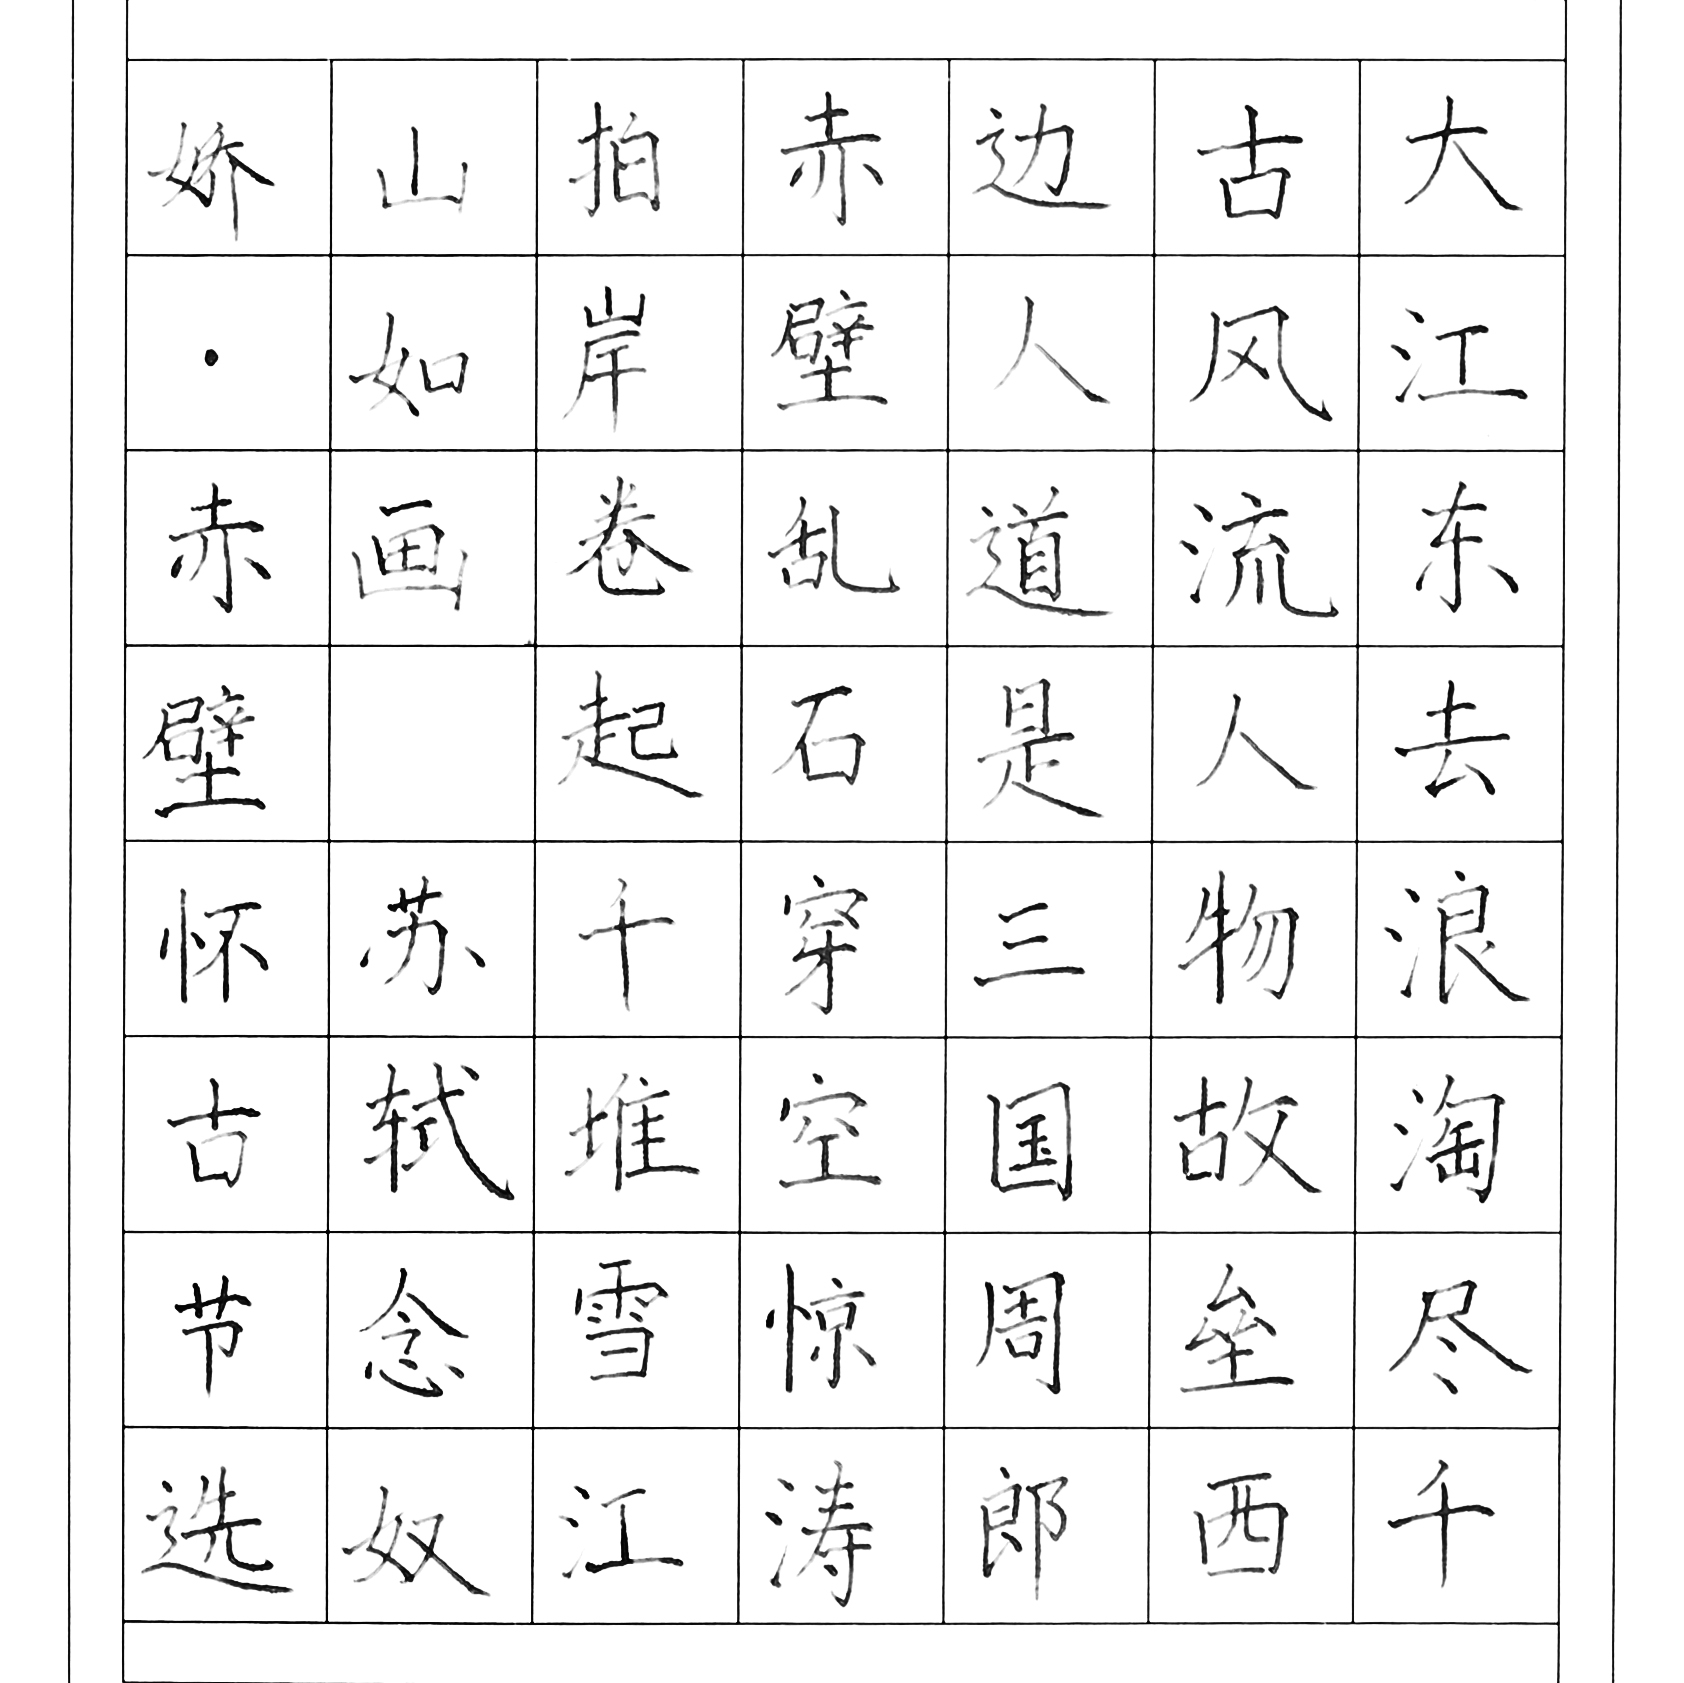 大江东去浪淘尽千
古风流人物故垒西
边人道是三国周郎
赤壁乱石穿空惊涛
拍岸卷起千堆雪江
山如画 苏轼念奴
娇·赤壁怀古节选